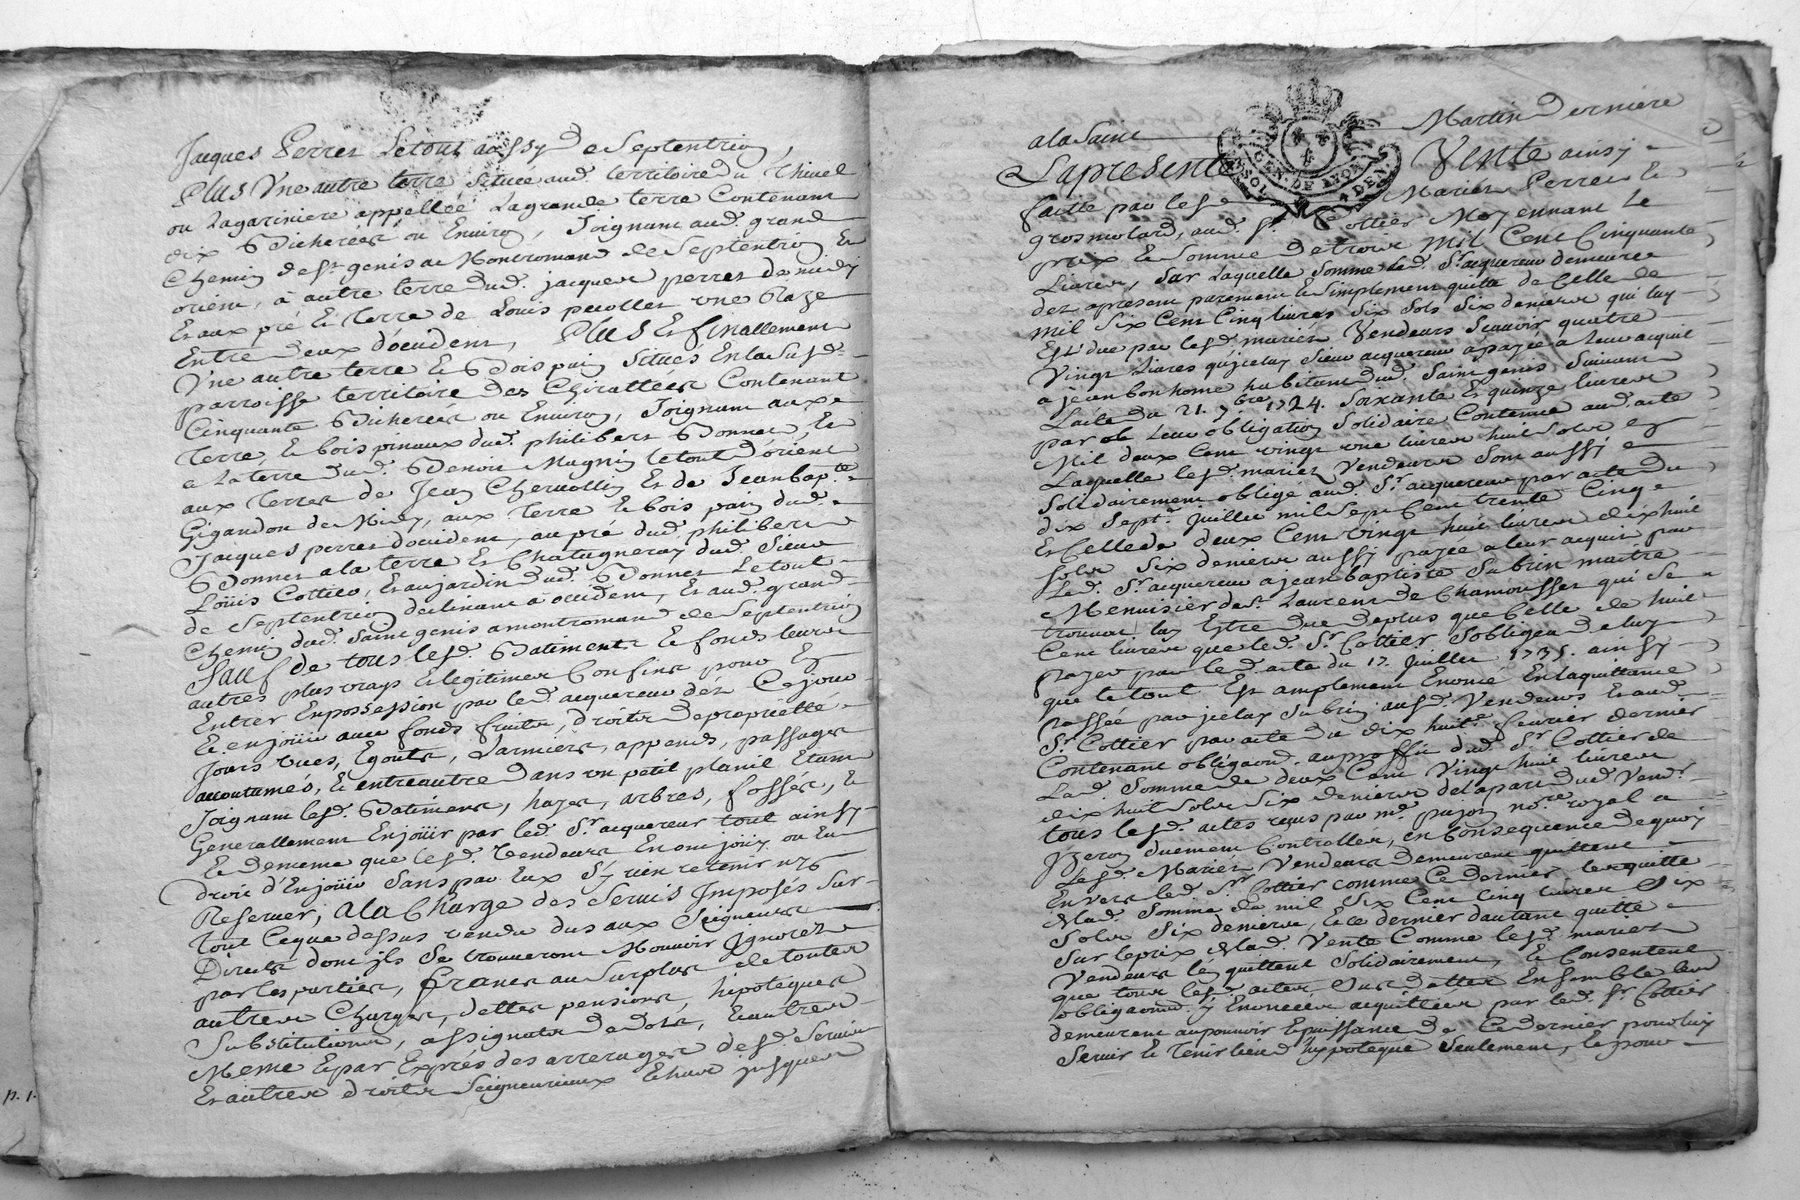 Jacques Perret Letout aussy de Septentrion,
PLUS Une autre terre Située aud. territoire du Thinel
ou Lagariniere appellée Lagrande terre Contenant
dix Bicherées ou Environ, Joignant aud. grand
Chemin de St. genis a Montromand de Septentrion Et
orient, à autre terre dud. jacques perret de midy
Et aux pré et Terre de Louis pecollet une Raze
Entre deux d'occident, PLUS Et finallement
Une autre terre Et Bois pin Situés En la Susd.
parroisse territoire des Chirattées Contenant
Cinquante Bicherées ou Environ, Joignant aux
Terre Et bois pineaux dud. philibert Bonnet, Et
a La terre dud. Benoit Magnin Letout d'orient
aux Terres de Jean Chervollin Et de Jean bap.te
Gigandon de Midy, aux Terre Et bois pin dud.
Jacques perret d'occident, au pré dud. philibert
Bonnet a la terre Et Chatagneray dud. Sieur
Loüis Cottier, Et au jardin dud. Bonnet Letout
de Septentrion declinant à occident, Et aud. grand
Chemin dud. Saint genis a montromand de Septentrion
Sauf de tous lesd. Batiments Et fonds leurs
autres plus vrays Et legitimes Confins pour Ez
Entrer En possession par led. acquereur déz Cejourd
Et en joüir aux fonds fruits, droits de proprietté
Jours vues, Egouts, Larmiers, appends, passages
accoutumés, Et entre autre dans un petit planil Etant
Joignant lesd. Batiments, hayes, arbres, fossés, Et
Generallement En joüir par led. Sr. acquereur tout ainsy
Et de meme que lesd. Vendeurs En ont joüy ou Eu
droit d'Enjoüir Sans par Eux S'y rien retenir ny
Reserver, A la Charge des Servis Imposés Sur
tout Ce que dessus vendu dus aux Seigneurs
Directs dont ils Se trouveront Mouvoir Ignorez
par les parties, francs au Surplus de toutes
autres Charges, dettes pensions, hipoteques
Substitutions, assignats de dots, Et autres
Meme Et par Exprés des arrerages desd. Servis
Et autres droits Seigneuriaux Echus jusques
a la Saint Martin Derniere
La presente Vente ainsy
faitte par lesd. Mariés Perret Et
grosmolard, aud. Sr. Cottier Moyennant Le
prix Et Somme de trois Mil Cent Cinquante
Livres, Sur Laquelle Somme Led. Sr. acquereur demeure
dez apresent purement Et Simplement quitte de Celle de
mil Six Cent Cinq livres Six Sols Six deniers qui luy
Est due par lesd. mariés Vendeurs Scavoir quatre
Vingt Livres qu'icelui Sieur acquereur a payée a leur acquit
a jean bon home habitant dud. Saint genis Suivant
L'acte du 21. 7bre 1724. Soixante Et quinze livres
par ob. Leur obligation Solidaire Contenue aud. acte
Mil deux Cent vingt une livres huit Sols Ez
Laquelle lesd. mariés Vendeurs Sont aussi
Solidairement obligé aud. Sr. acquereur par acte du
dix Sept. Juillet mil Sept Cent trente Cinq
Et Celle de deux Cent Vingt huit livres dix huit
Sols Six deniers aussy payée a leur acquit par
Led. Sr. acquereur a jean baptiste Subrin maitre
Menuisier de St. Laurent de Chamousset qui Se
trouvoit luy Estre due de plus que Celle de huit
Cent livres que led. Sr. Cottier S'obligea de luy
payer par led. acte du 17. Juillet 1735. ainsy
que le tout Est amplement Enoncé En la quittance
Passée par jceluy Subrin ausd. Vendeurs Et aud.
Sr. Cottier par acte du dix huit.e fevrier dernier
Contenant obligaon. au proffit dud. Sr. Cottier de
Lad. Somme de deux Cent Vingt huit livres
dix huit Sols Six deniers de la part dud. Vendr.
tous lesd. actes reçus par me. pujon no.re royal a
Yzeron duement Controllés, en Consequence de quoy
Lesd. Mariés Vendeurs demeurent quittent
Envers led. Sr. Cottier comme Ce dernier les quitte
de lad. Somme de mil Six Cent Cinq livres Six
Sols Six deniers, Et Ce dernier d'autant quitte
Sur le prix de lad. Vente Comme lesd. mariés
Vendeurs l'en quittent Solidairement, Et Consentent
que tous lesd. actes Sus datter Ensemble leur
obligaons. y Enoncées acquittées par led. Sr. Cottier
demeurent au pouvoir Et puissance de Ce dernier pour luy
Servir Et Tenir lieu d'hypoteque Seulement, Et pour
GEN. DE LYON